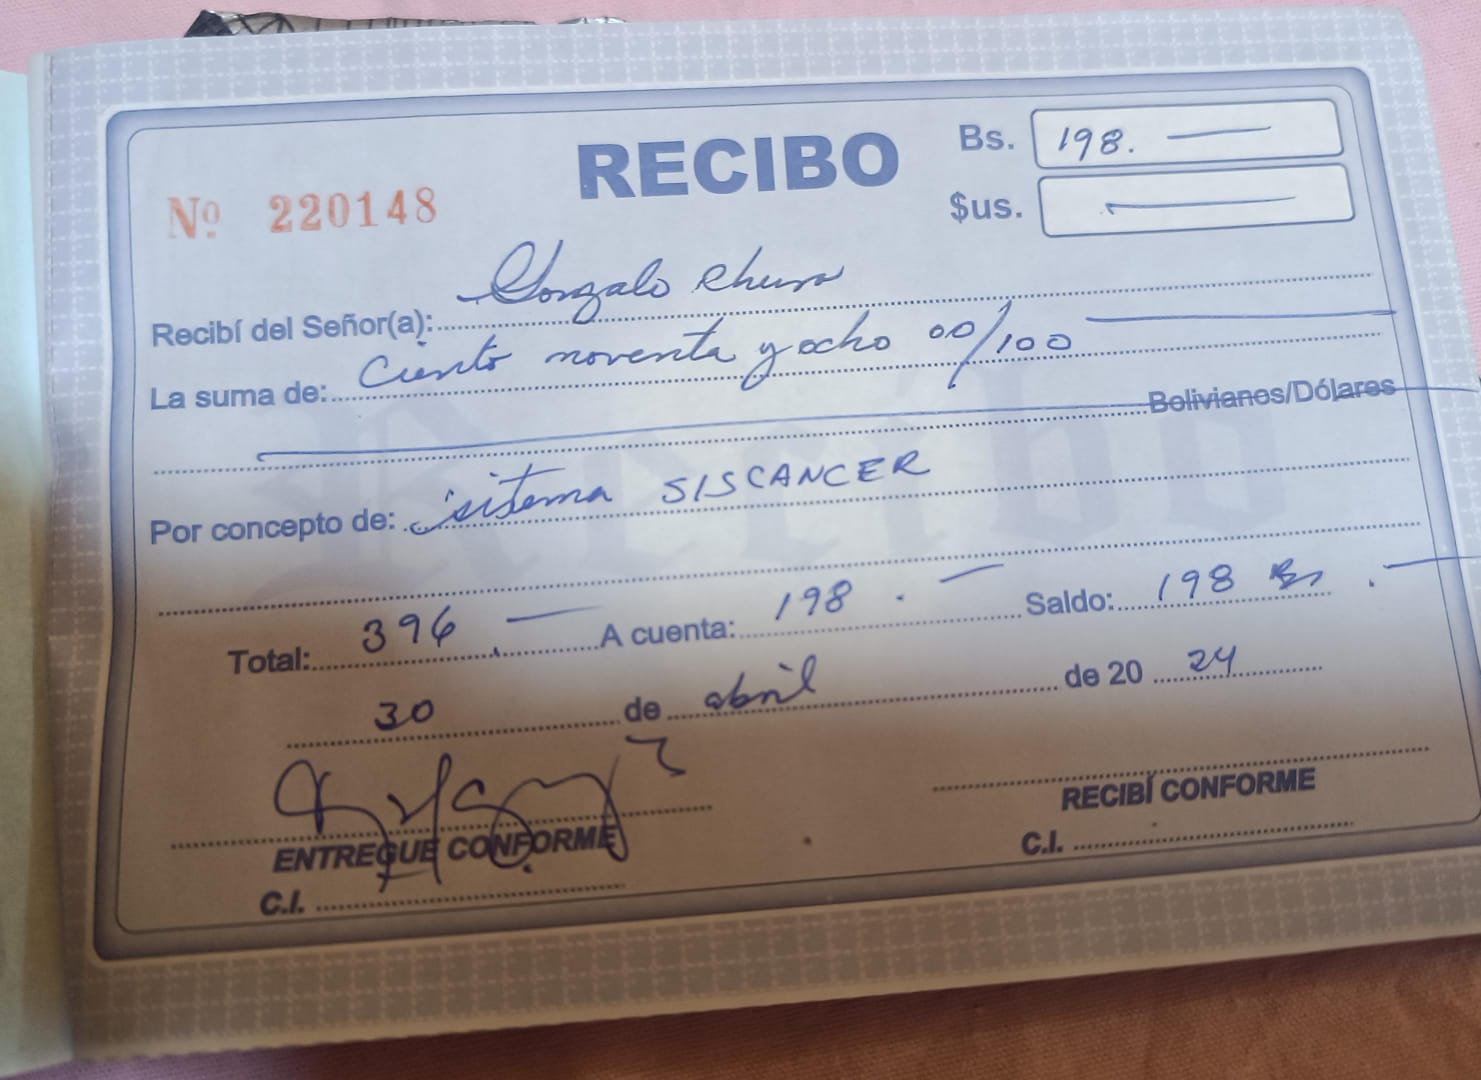 RECIBO
Bs. 198.
Nº 220148
$us.
Recibí del Señor(a): Gonzalo Chura
La suma de: Ciento noventa y ocho 00/100
Bolivianos/Dólares
Por concepto de: sistema SISCANCER
Total: 396. A cuenta: 198. Saldo: 198 Bs.
30 de abril de 20 24
ENTREGUE CONFORME
RECIBÍ CONFORME
C.I.
C.I.